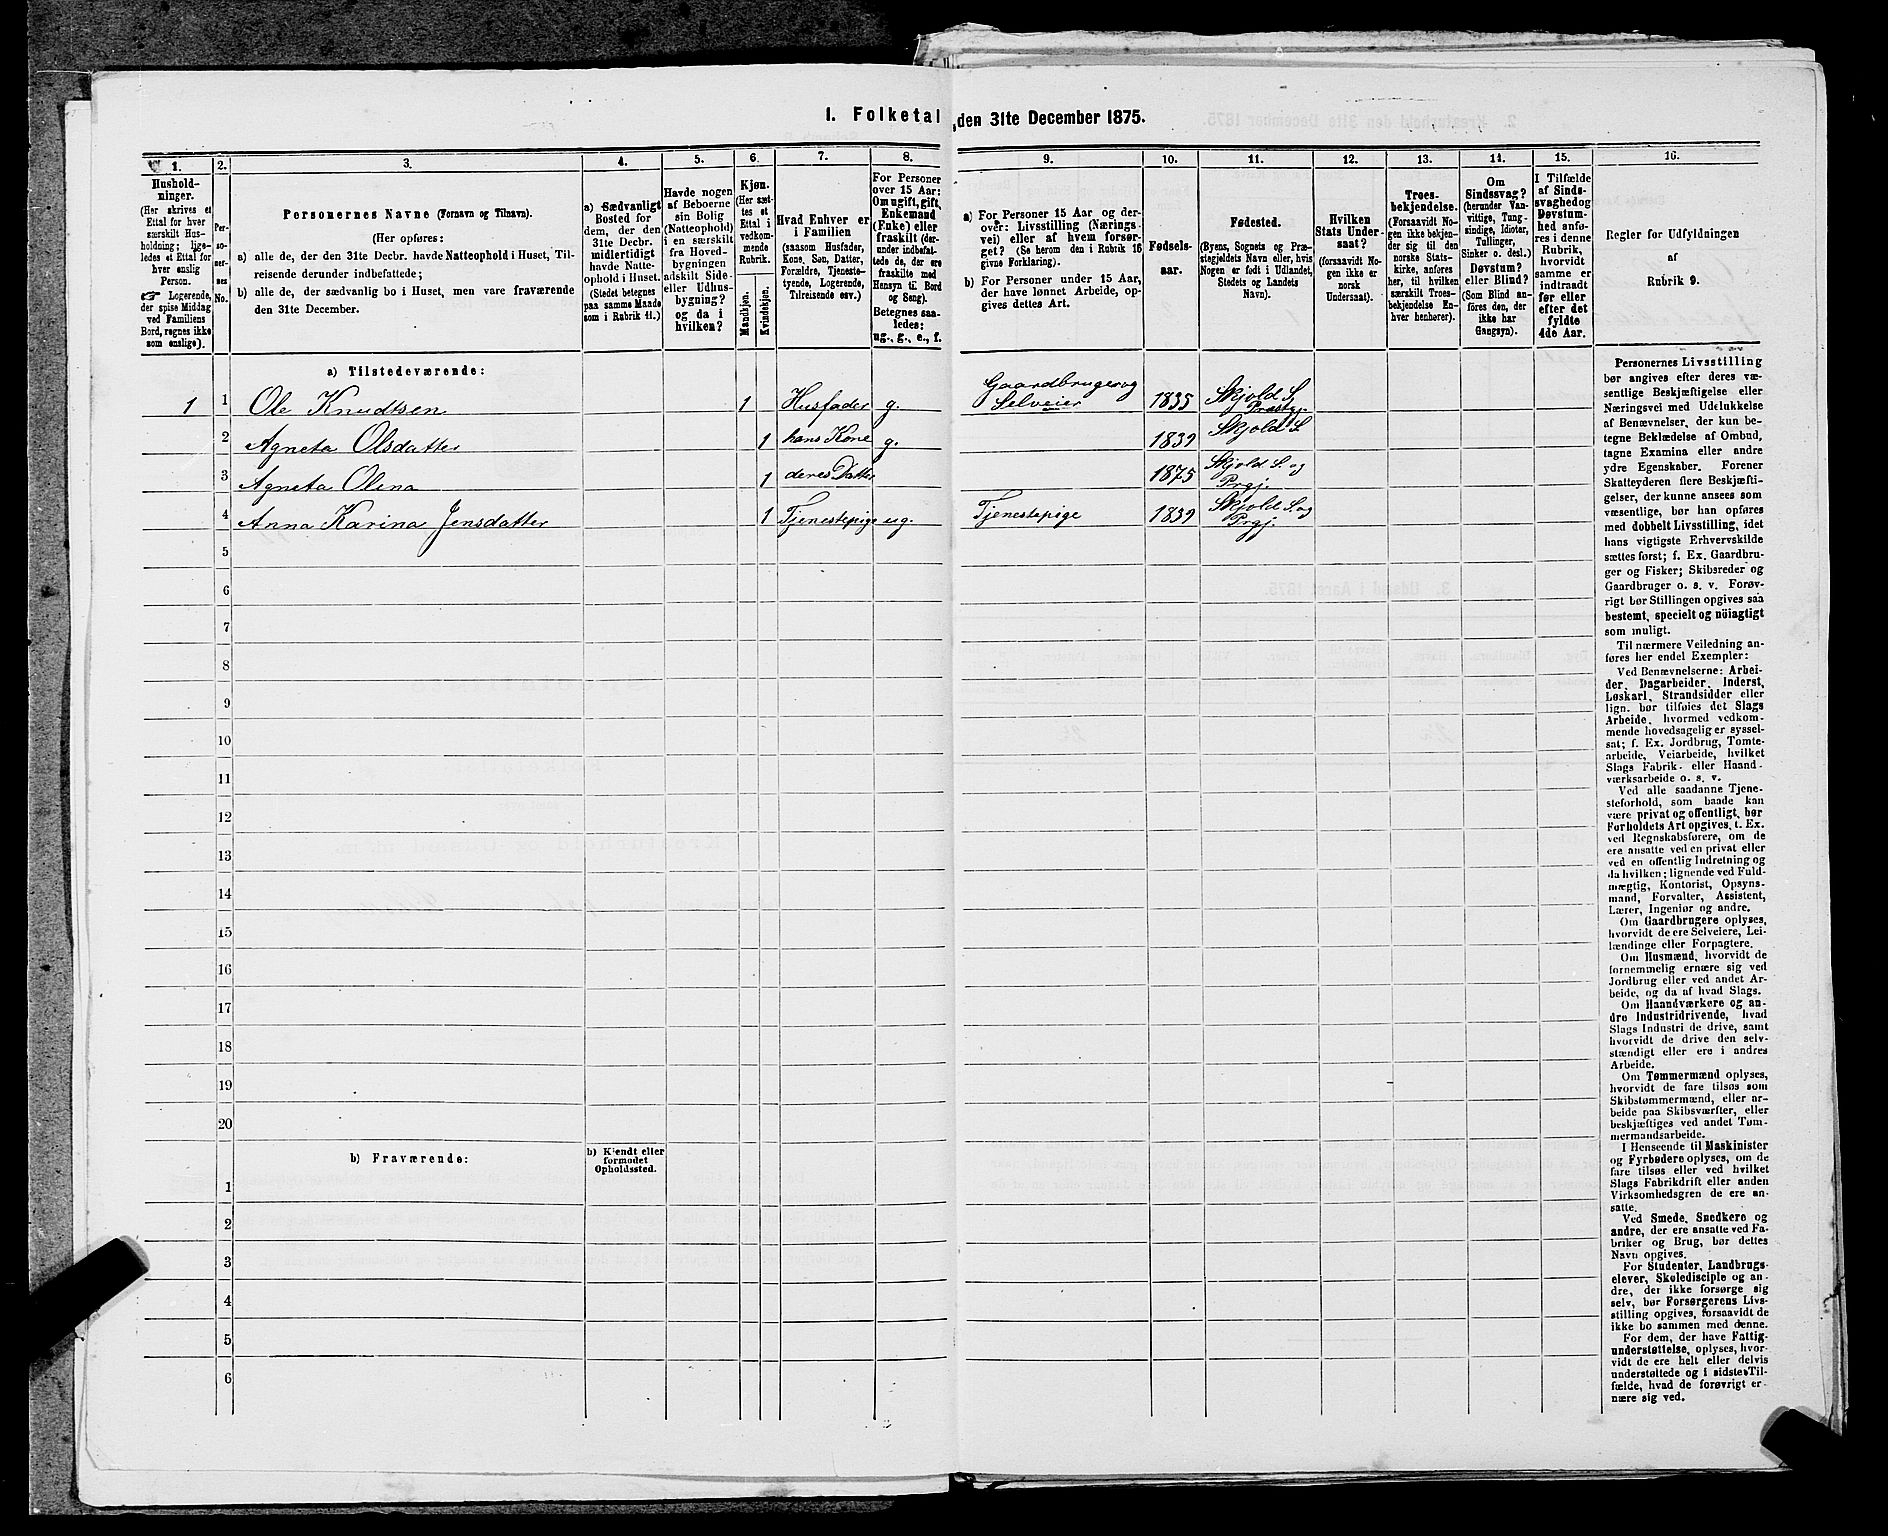 I. Folketal den 31te December 1875.
1.
Hushold-
ninger.
(Her skrives et
Ettal for hver
særskilt Hus-
holdning; lige-
ledes et Ettal for
hver enslig
Person.
☞ Logerende,
der spise Middag
ved Familiens
Bord, regnes ikke
som enslige).
2.
Per-
so-
ner-
nes
No.
3.
Personernes Navne (Fornavn og Tilnavn).
(Her opføres:
a) alle de, der den 31te Decbr. havde Natteophold i Huset, Til-
reisende derunder indbefattede;
b) alle de, der sædvanlig bo i Huset, men vare fraværende
den 31te December.
4.
a) Sædvanligt
Bosted for
dem, der den
31te Decbr.
midlertidigt
havde Natte-
ophold i Huset.
(Stedet betegnes
paa samme Maade
som i Rubrik 11.)
5.
Havde nogen
af Beboerne
sin Bolig
(Natteophold)
i en særskilt
fra Hoved-
bygningen
adskilt Side-
eller Udhus-
bygning?
og da i
hvilken?
6.
Kjøn.
(Her sæt-
tes et
Ettal i
vedkom-
mende
Rubrik.
Mandkjøn.
Kvindekjøn.
7.
Hvad Enhver er
i Familien
(saasom Husfader,
Kone, Søn, Datter,
Forældre, Tjeneste-
tyende, Logerende,
Tilreisende osv.)
8.
For Personer
over 15 Aar:
Om ugift, gift,
Enkemand
(Enke) eller
fraskilt (der-
under indbefat-
tede de, der ere
fraskilte med
Hensyn til Bord
og Seng).
Betegnes saa-
ledes:
ug., g., e., f.
9.
a) For Personer 15 Aar og der-
over: Livsstilling (Nærings-
vei) eller af hvem forsør-
get? (Se herom den i Rubrik 16
givne Forklaring).
b) For Personer under 15 Aar,
der have lønnet Arbeide, op-
gives dettes Art.
10.
Fødsels-
aar.
11.
Fødested.
(Byens, Sognets og Præ-
stegjeldets Navn eller, hvis
Nogen er født i Udlandet,
Stedets og Landets
Navn).
12.
Hvilken
Stats Under-
saat?
(forsaavidt No-
gen ikke er
norsk
Undersaat).
13.
Troes-
bekjendelse.
(Forsaavidt No-
gen ikke bekjen-
der sig til den
norske Stats-
kirke, anføres
her, til hvilken
særskilt Troes-
bekjendelse En-
hver henhører).
14.
Om
Sindssvag?
(herunder Van-
vittige, Tung-
sindige, Idioter,
Tullinger,
Sinker o. desl.)
Døvstum?
eller Blind?
(Som Blind an-
føres den, der
ikke har
Gangsyn).
15.
I Tilfælde
af Sinds-
svaghed og
Døvstum-
hed anfø-
res i denne
Rubrik,
hvorvidt
samme er
indtraadt
før eller
efter det
fyldte
4de Aar.
16.
Regler for Udfyldningen
af
Rubrik 9.
a) Tilstedeværende:
1 1 Ole Knudtsen 1 Husfader g. Gaardbruger og Selveier 1835 Skjold S. Præstgj.
2 Agneta Olsdatter 1 hans Kone g. 1839 Skjold S.
3 Agneta Olena 1 deres Datter 1875 Skjold S. og Prgj.
4 Anna Karina Jensdatter 1 Tjenestepige ug. Tjenestepige 1839 Skjold S. og Prgj.
5
6
7
8
9
10
11
12
13
14
15
16
17
18
19
20
b) Fraværende:
b) Kjendt eller
formodet
Opholdssted.
1
2
3
4
5
6
Personernes Livsstilling
bør angives efter deres væ-
sentlige Beskjæftigelse eller
Næringsvei med Udelukkelse
af Benævnelser, der kun be-
tegne Beklædelse af Ombud,
tagne Examina eller andre
ydre Egenskaber. Forener
Skatteyderen flere Beskjæfti-
gelser, der kunne ansees som
væsentlige, bør han opføres
med dobbelt Livsstilling, idet
hans vigtigste Erhvervskilde
sættes først; f. Ex. Gaardbru-
ger og Fisker; Skibsreder og
Gaardbruger o. s. v. Forøv-
rigt bør Stillingen opgives saa
bestemt, specielt og nöiagtigt
som muligt.
Til nærmere Veiledning an-
føres her endel Exempler:
Ved Benævnelserne: Arbei-
der, Dagarbeider, Inderst,
Løskarl, Strandsidder eller
lign. bør tilføies det Slags
Arbeide, hvormed vedkom-
mende hovedsagelig er syssel-
sat; f. Ex. Jordbrug, Tomte-
arbeide, Veiarbeide, hvilket
Slags Fabrik- eller Haand-
værksarbeide o. s. v.
Ved alle saadanne Tjene-
steforhold, som baade kan
være privat og offentligt, bør
Forholdets Art opgives, t. Ex.
ved Regnskabsførere, om de
ere ansatte ved en privat eller
ved en offentlig Indretning og
da hvilken; lignende ved Fuld-
mægtig, Kontorist, Opsyns-
mand, Forvalter, Assistent,
Lærer, Ingeniør og andre.
Om Gaardbrugere oplyses,
hvorvidt de ere Selveiere, Lei-
lændinge eller Forpagtere.
Om Husmænd, hvorvidt de
fornemmelig ernære sig ved
Jordbrug eller ved andet Ar-
beide, og da af hvad Slags.
Om Haandværkere og an-
dre Industridrivende, hvad
Slags Industri de drive, samt
hvorvidt de drive den selv-
stændigt eller ere i andres
Arbeide.
Om Tømmermænd oplyses,
hvorvidt de fare tilsøs som
Skibstømmermænd, eller ar-
beide paa Skibsværfter, eller
beskjæftiges ved andet Tøm-
mermandsarbeide.
I Henseende til Maskinister
og Fyrbødere oplyses, om de
fare tilsøs eller ved hvilket
Slags Fabrikdrift eller anden
Virksomhedsgren de ere an-
satte.
Ved Smede, Snedkere og
andre, der ere ansatte ved Fa-
briker og Brug, bør dettes
Navn opgives.
For Studenter, Landbrugs-
elever, Skoledisciple og an-
dre, der ikke forsørge sig
selv, bør Forsørgerens Livs-
stilling opgives, forsaavidt de
ikke bo sammen med denne.
For dem, der have Fattig-
understøttelse, oplyses, hvor-
vidt de ere helt eller delvis
understøttede og i sidste Til-
fælde, hvad de forøvrigt er-
nære sig ved.